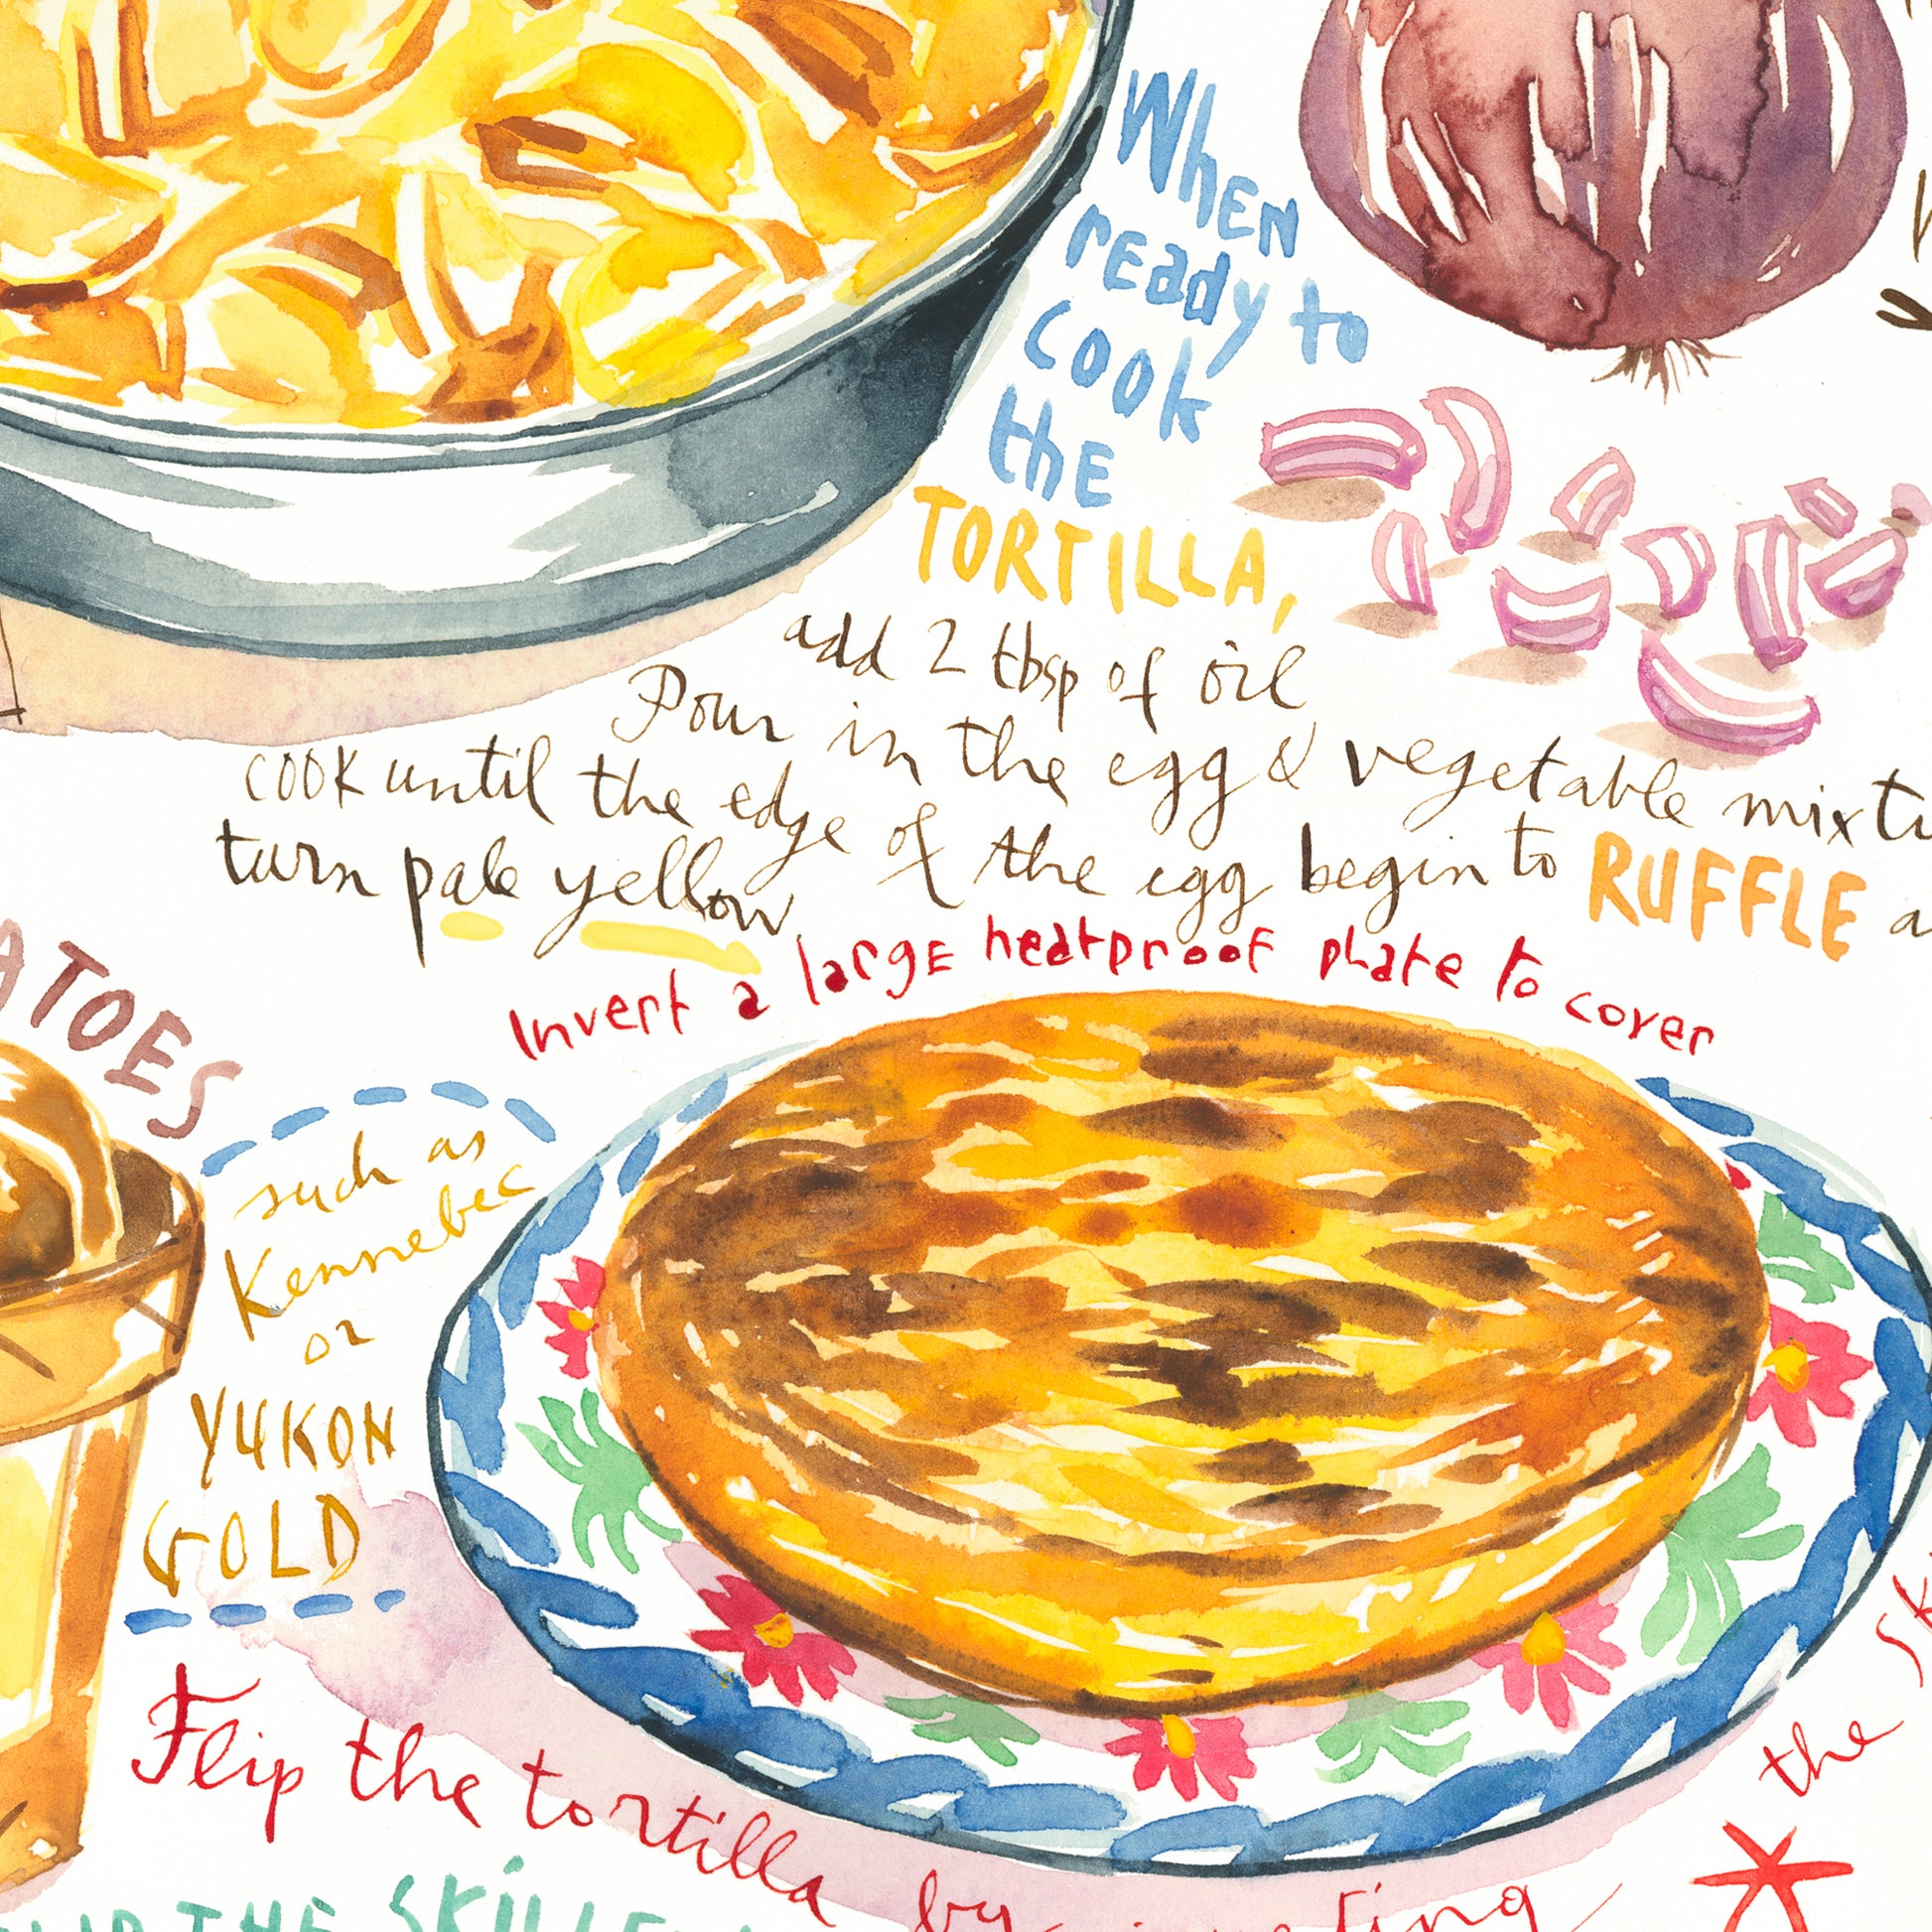 WhEN
rEady to
cook
thE
TORTILLA,
add 2 tbsp of oil
Pour in the egg & vegetable
cook until the edge of the egg begin to RUFFLE
turn pale yellow
Invert a largE heatproof plate to cover
such as
Kennebec
or
YUKON
GOLD
Flip the tortilla by
the
THE